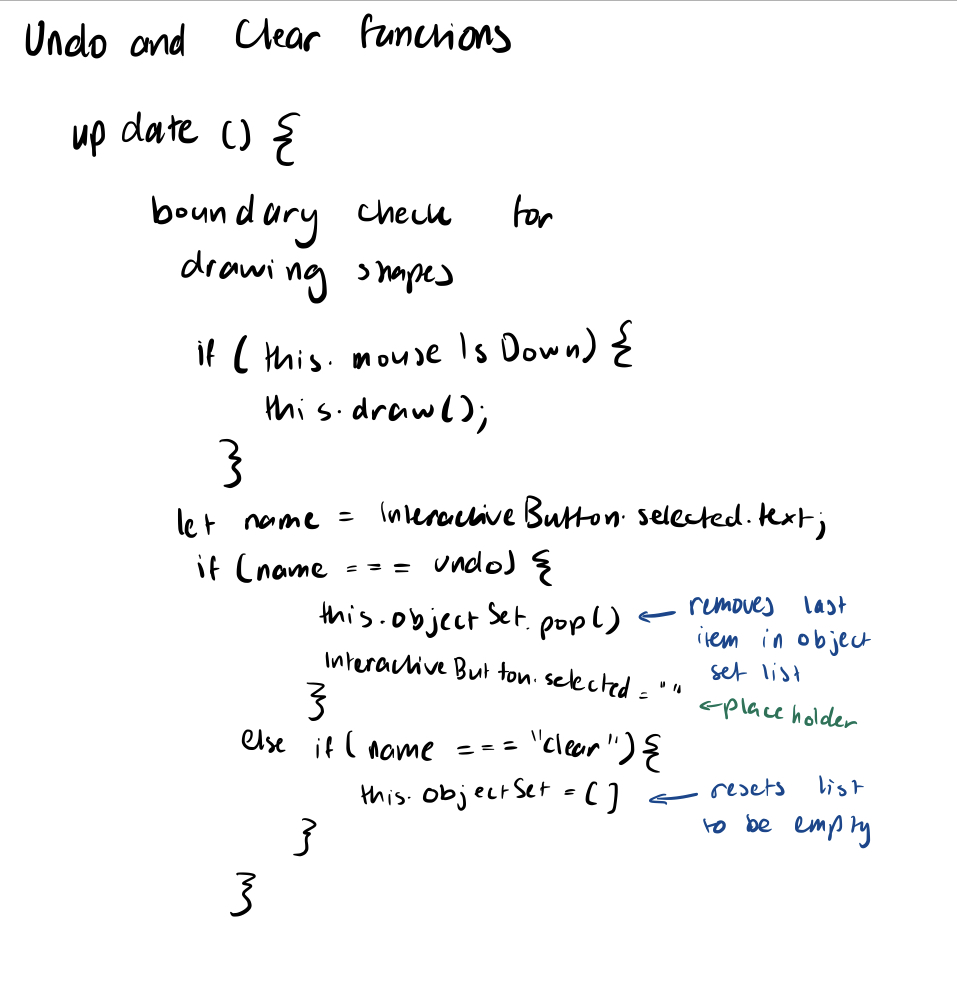 Undo and Clear functions
update () {
boundary check for
drawing shapes
if ( this. mouse Is Down) {
this.draw();
}
let name = InteractiveButton. selected.text;
if (name === undo) {
this.objectSet.pop() ← removes last
item in object
set list
InteractiveButton.selected = " "
← place holder
}
else if ( name === "clear"){
this. objectSet = [] ← resets list
to be empty
}
}